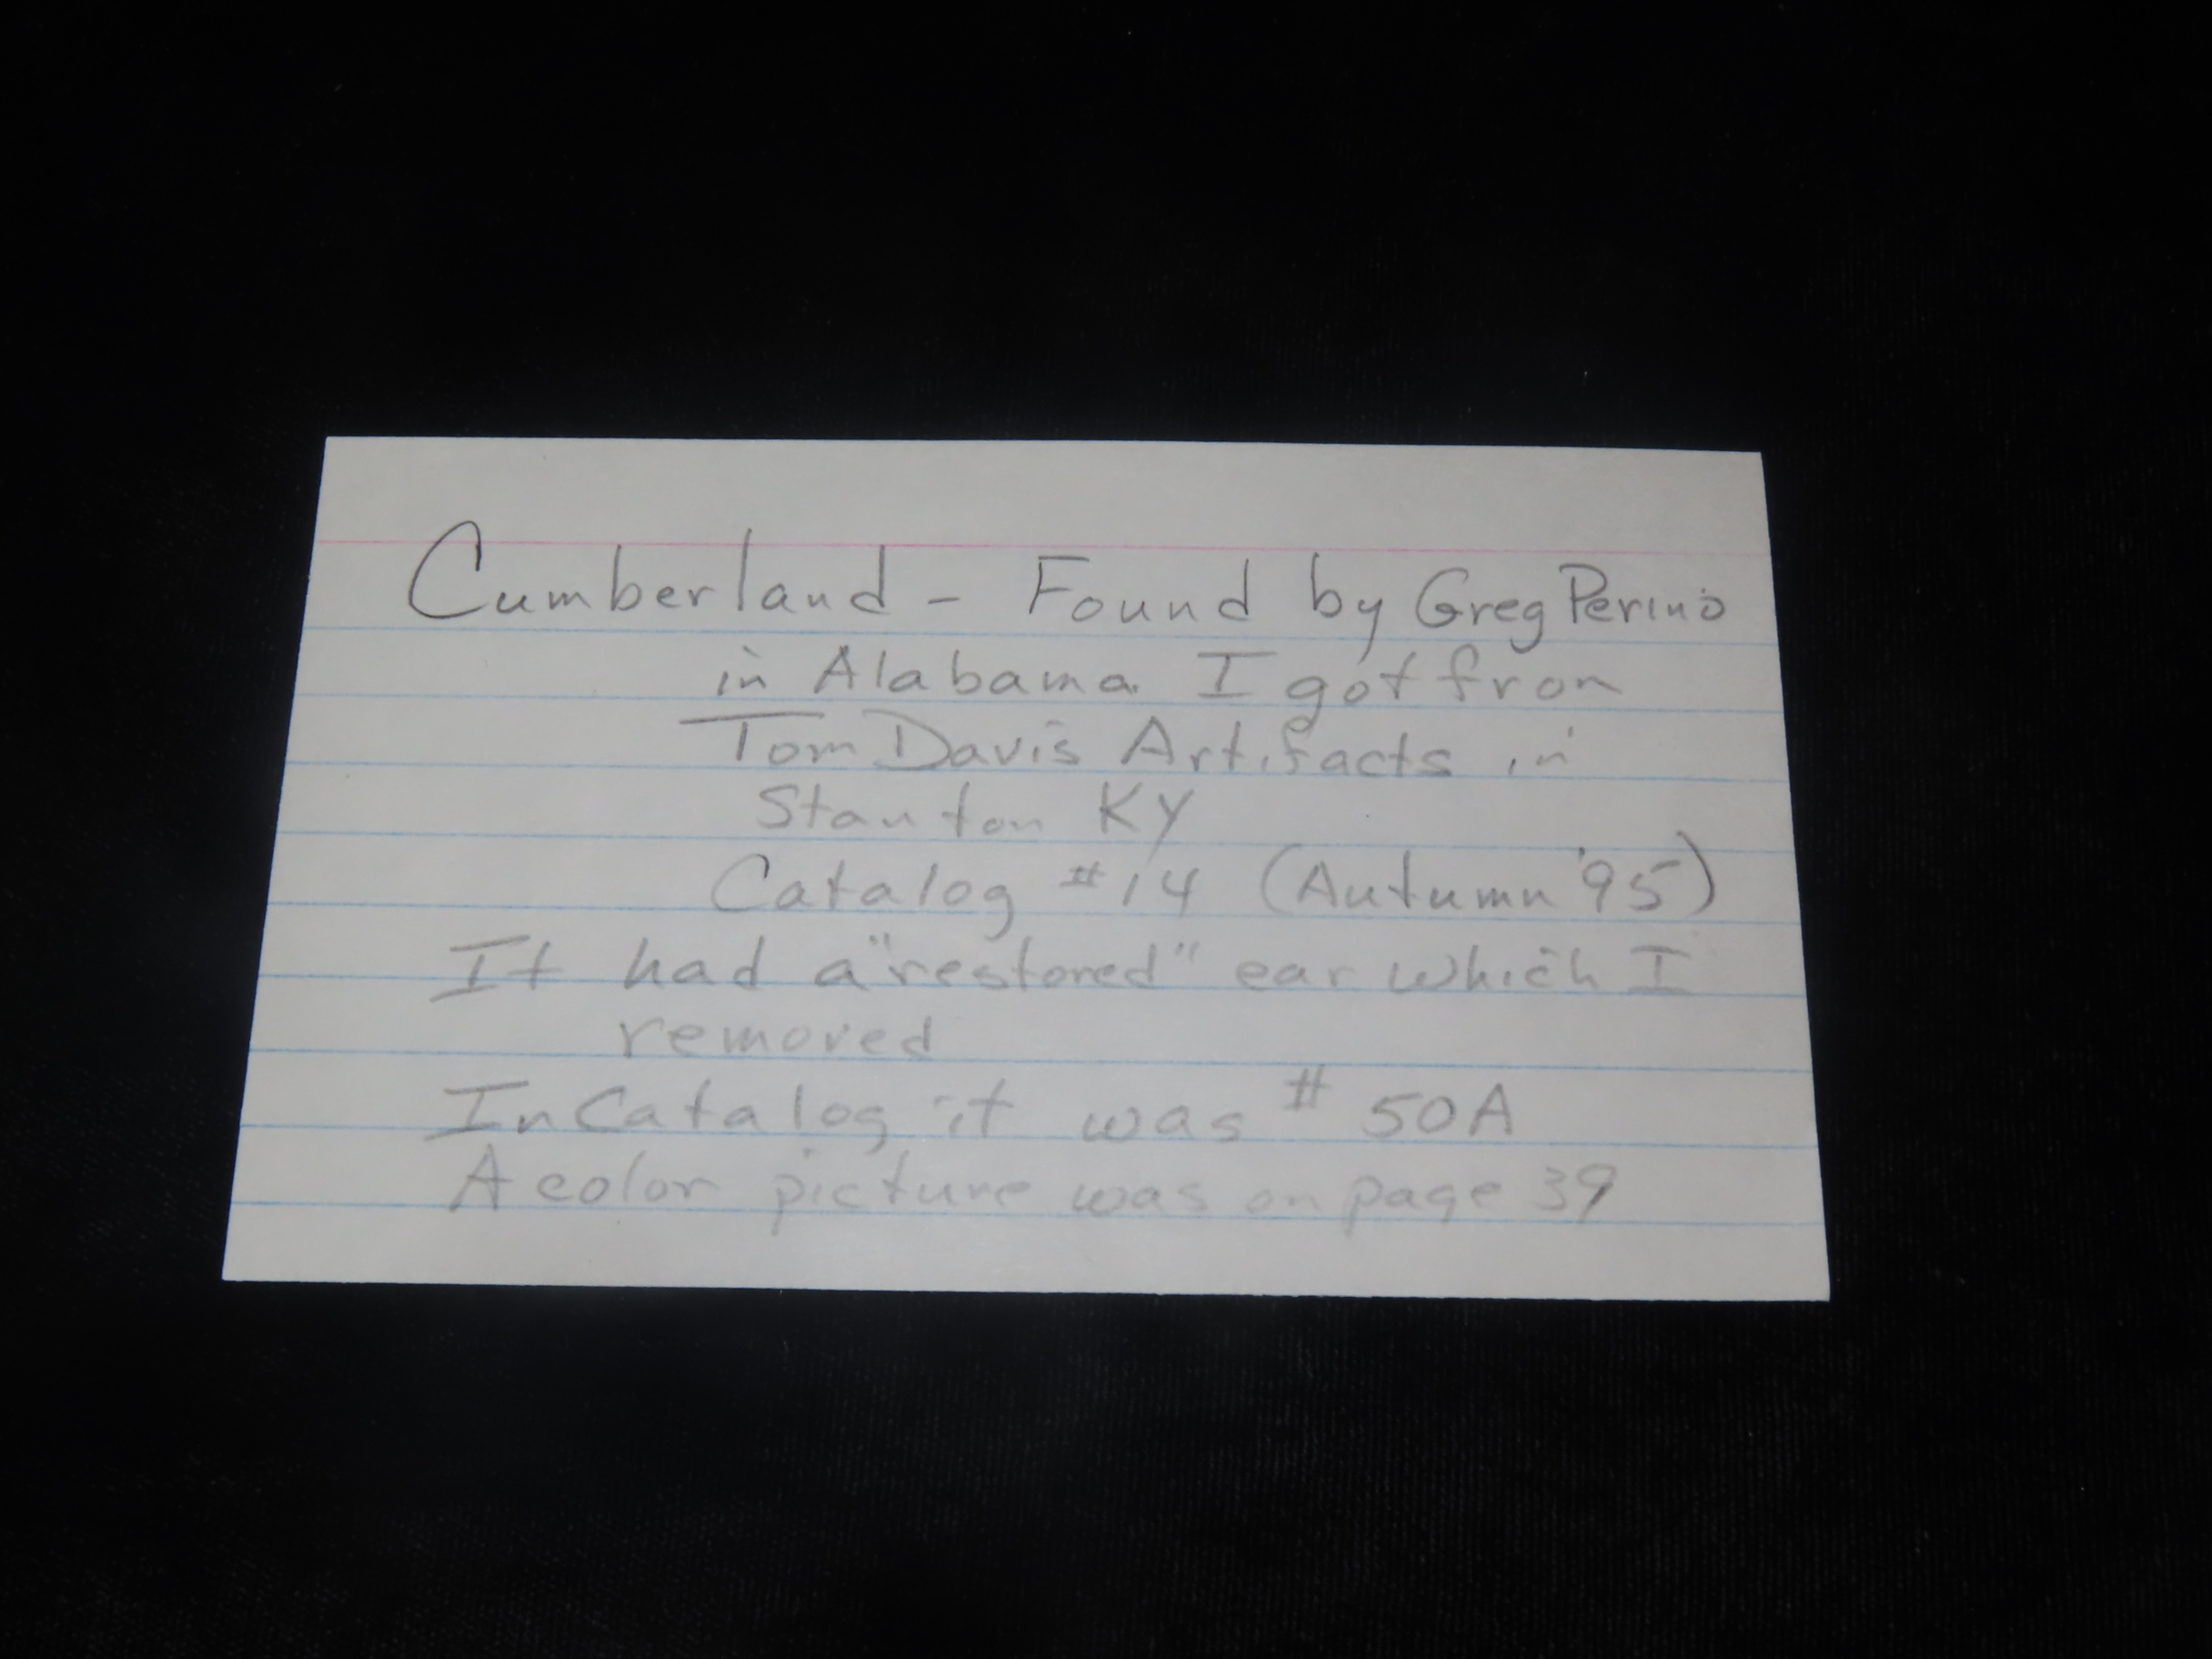 Cumberland - Found by Greg Perino
in Alabama. I got from
Tom Davis Artifacts in
Stanton KY
Catalog #14 (Autumn '95)
It had a "restored" ear which I
removed
In Catalog it was # 50A
A color picture was on page 39